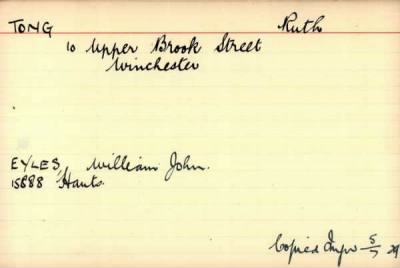 TONG Ruth
10 Upper Brook Street
Winchester
EYLES, William John.
15888 Hants.
Copied Impw 5/7 29